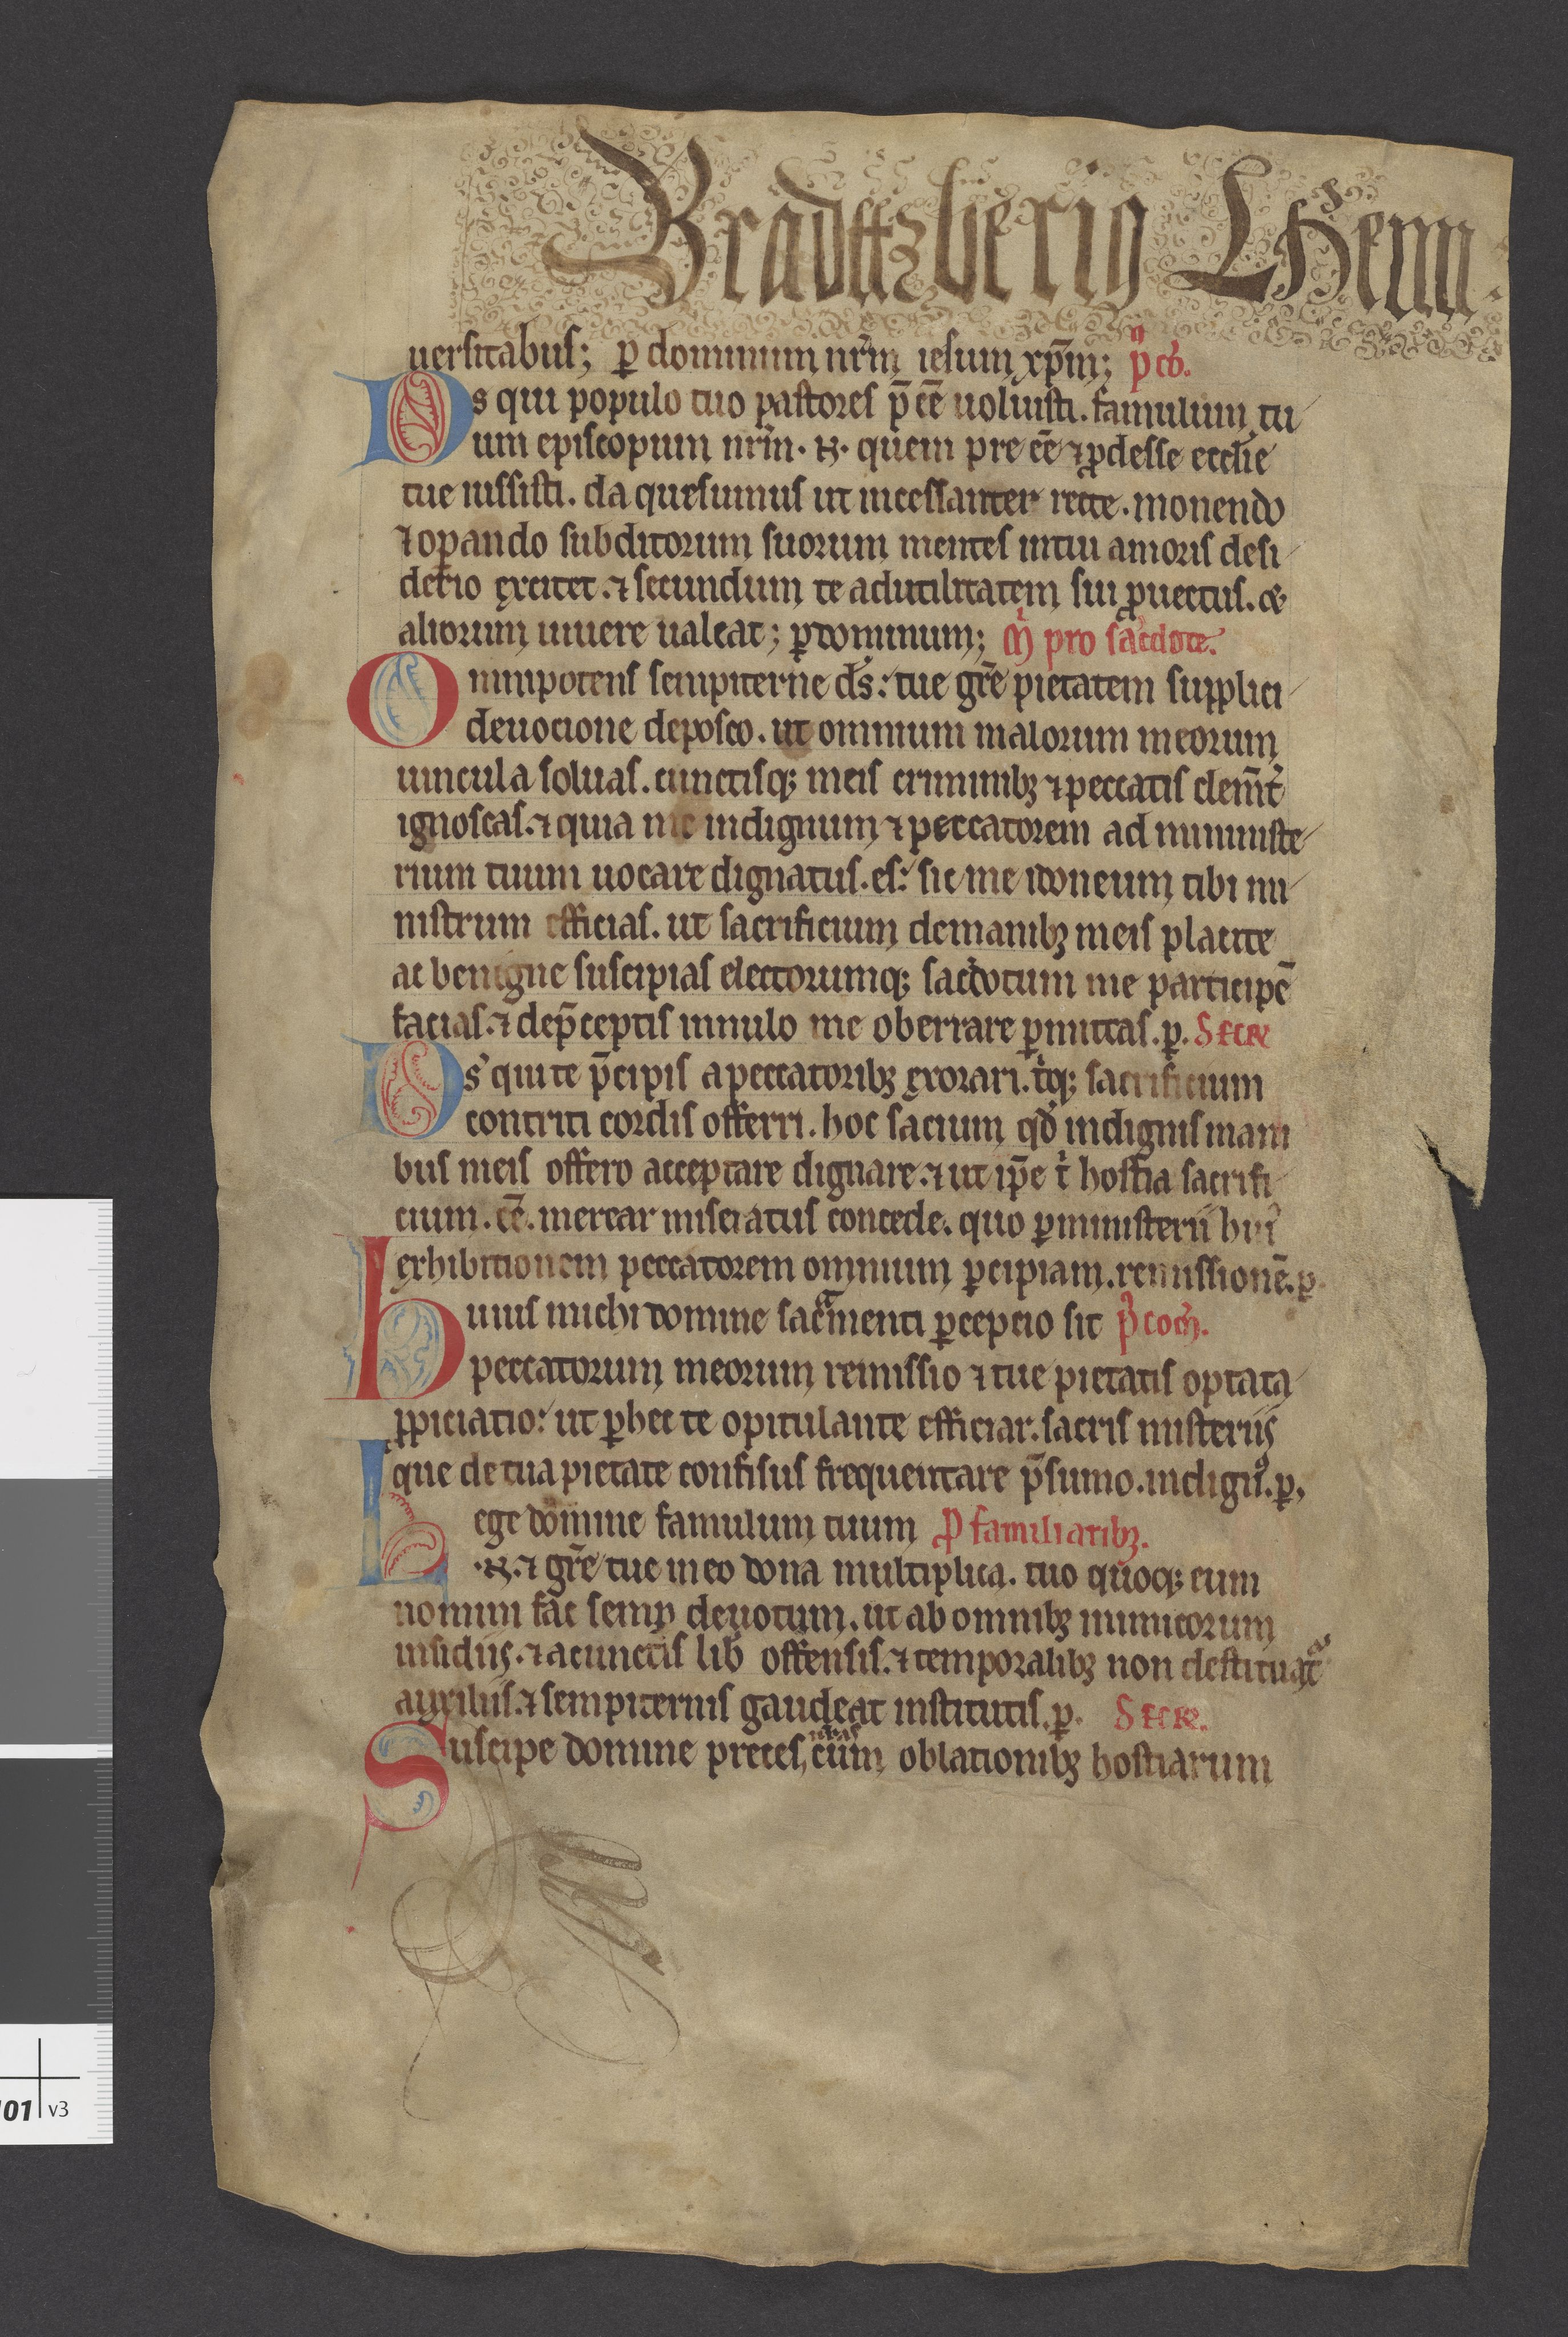 Bradttzberig LHenn
uersitabus; ꝑ dominum nr̃m iesum xp̃m; p̃ co͂.
Ds qui populo tuo pastores p̃ ee͂ uoluisti. famulum tu
um episcopum nr̃m. N. quem pre ee͂ ⁊ ꝓdesse eccl̃ie
tue iussisti. da quesumus ut incessanter recte. monendo
⁊ oꝑando subditorum suorum mentes intui amoris desi
derio excitet. ⁊ secundum te ad utilitatem sui ꝓuectus. &
aliorum uiuere ualeat; ꝑ dominum; pro sac̃dote.
Omnipotens sempiterne ds̃: tue gr̃e pietatem supplici
deuocione deposco. ut omnium malorum meorum
uincula soluas. cunctisqꝫ meis criminibꝫ ⁊ peccatis clem̃t̃
ignoscas. ⁊ quia me indignum ⁊ peccatorem ad ministe
rium tuum uocare dignatus. es: sic me idoneum tibi mi
nistrum efficias. ut sacrificium de manibꝫ meis placite
ac benigne suscipias electorumqꝫ sac̃dotum me participe͂
facias. ⁊ de p̃ceptis in nullo me oberrare ꝑmittas. ꝑ. Secr̃
Ds̃ qui te p̃cipis a peccatoribꝫ exorari. t̓qꝫ sacrificium
contriti cordis offerri. hoc sac̃ium qd̃ indignis mani
bus meis offero acceptare dignare. ⁊ ut ip̃e t̓ hostia sacrifi
cium. ee͂. merear miseratus concede. quo ꝑ ministerii huiꝰ
exhibitionem peccatorem omnium ꝑcipiam. remissione͂. ꝑ
huius michi domine sac̃menti ꝑcepcio sit p̃ com̃.
peccatorum meorum remissio ⁊ tue pietatis optata
ꝓpiciatio: ut ꝑ hec te opitulante efficiar. sacris misteriis
que de tua pietate confisus frequentare p̃sumo. indignꝰ. ꝑ.
Lege domine famulum tuum ꝓ familiaribꝫ.
.N. ⁊ gr̃e tue in eo dona multiplica. tuo quoqꝫ eum
nomini fac semꝑ deuotum. ut ab omnibꝫ inimicorum
insidiis. ⁊ a cunctis lib̃ offensis. ⁊ temporalibꝫ non destituat̃
auxiliis. ⁊ sempiternis gaudeat institutis. ꝑ. Secr̃.
Suscipe domine preces, cum oblationibꝫ hostiarum